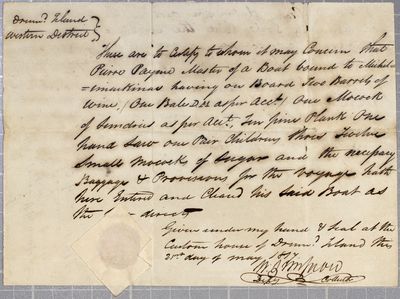 Drumd. Island
Western District
These are to Certify to whom it may Concern that
Pierre Payone Master of a Boat bound to Michili
=mackinac having on Board Two Barrels of
Wine / One Bale Do as per Acct / One Mocock
of Sundries as per Acct. Ten pine Plank One
hand Saw one Pair Childrens shoes Twelve
Small Mocock of Sugar and the necessary
Baggage & Provisions for the voyage hath
here Entered and Cleard his Said Boat as
the law directs
Given under my hand & Seal at the
Custom house of Drumd. Island the
21st day of may 1817
Depy Collector